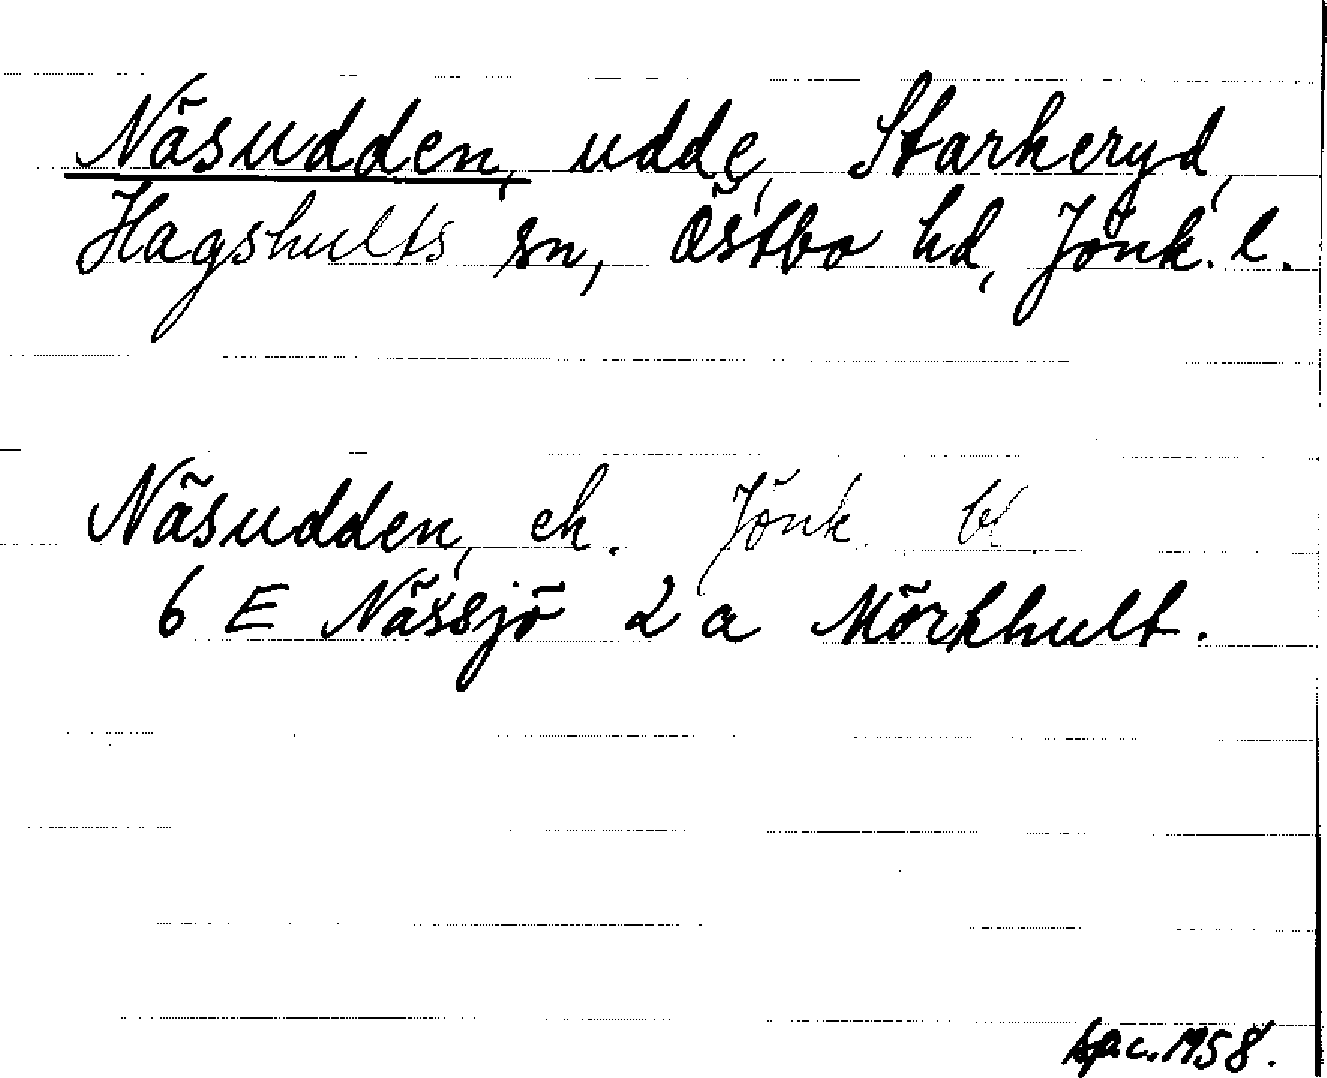 Näsudden, udde, Starkeryd,
Hagshults sn, Östbo hd, Jönk. l.
Näsudden, ek. Jönk bl
6 E Nässjö 2 a Mörkhult.
1958.